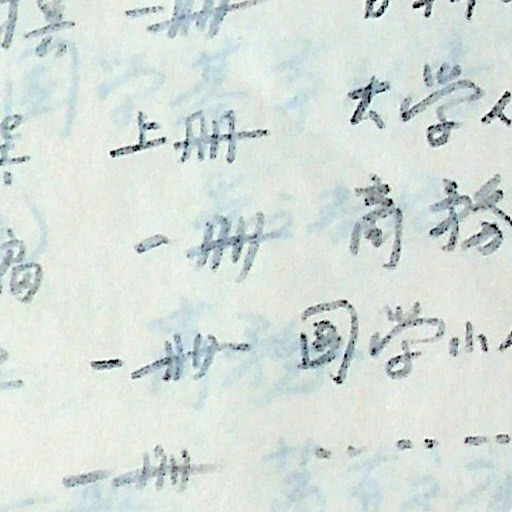 一册
上册 大学
一册 商務
一册 国学小
一册 ......